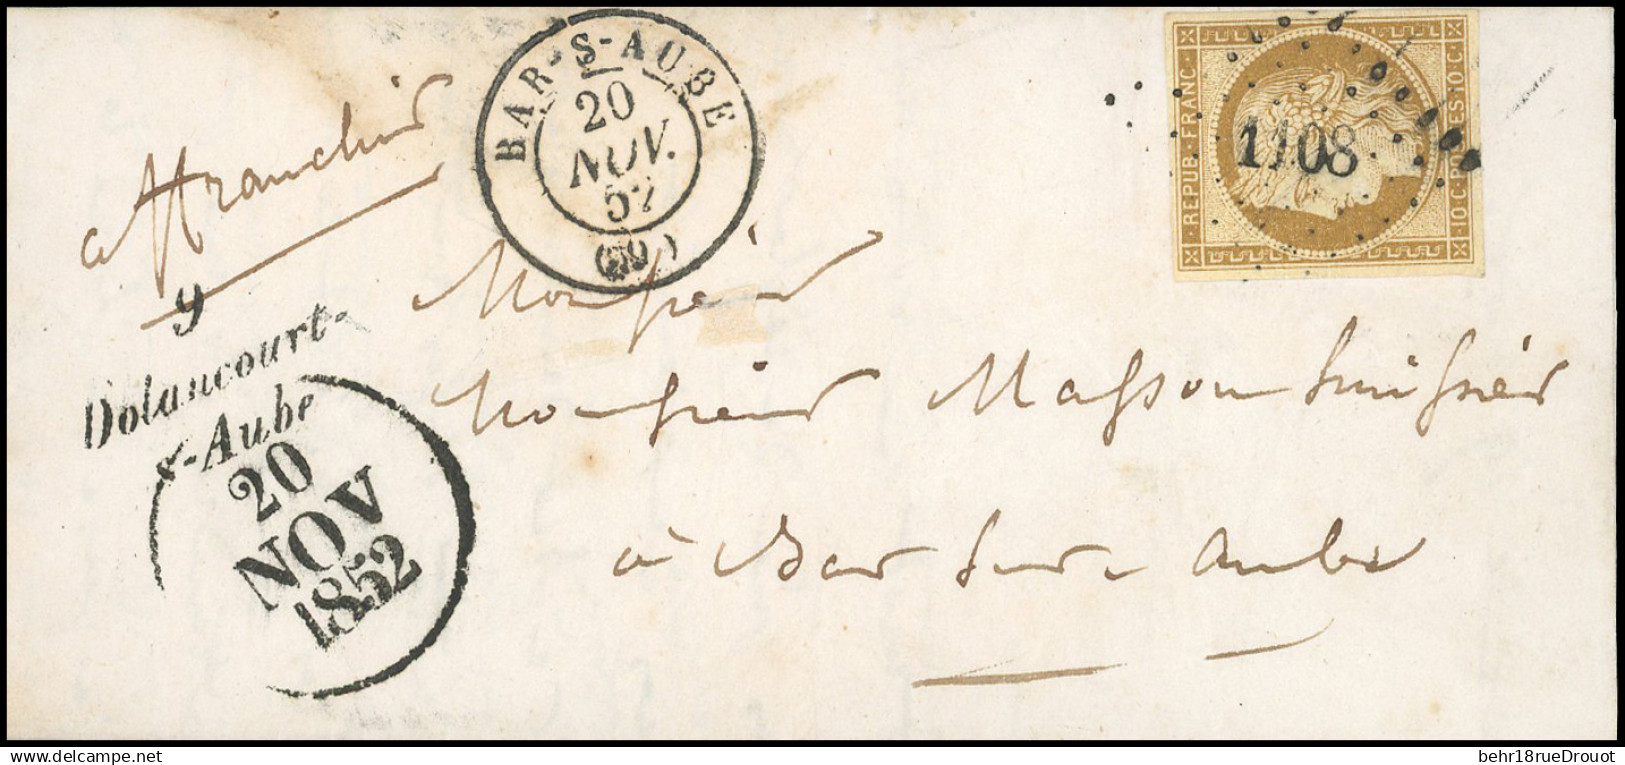 affranchie
BAR-S-AUBE
20
NOV.
52
REPUB. FRANC.
10.C. POSTES.10.C.
1108
9
Dolancourt-
s-Aube
20
NOV
1852
Monsieur
Monsieur Masson huissier
à Bar sur aube
behr18rueDrouot